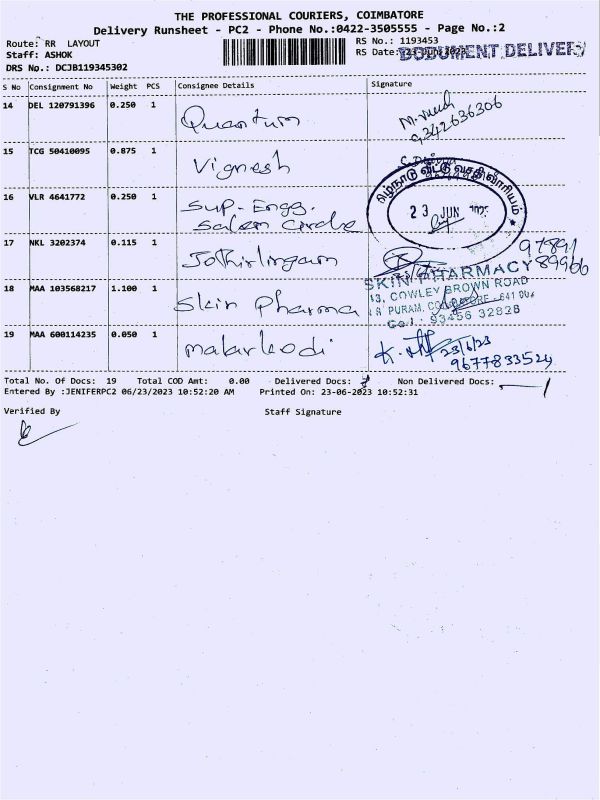 THE PROFESSIONAL COURIERS, COIMBATORE
Delivery Runsheet - PC2 - Phone No.:0422-3505555 - Page No.:2
Route: RR LAYOUT
RS No.: 1193453
Staff: ASHOK
RS Date: 23 Jun 2023
DOCUMENT DELIVERY
DRS No.: DCJB119345302
S No Consignment No Weight PCS Consignee Details Signature
14 DEL 120791396 0.250 1 Quantum
9342636306
15 TCG 50410095 0.875 1 Vignesh
தமிழ்நாடு வீட்டு வசதி வாரியம்
23 JUN
16 VLR 4641772 0.250 1 Sup. Engg.
Salem Circle
17 NKL 3202374 0.115 1 Jothirlingam
97891
89966
18 MAA 103568217 1.100 1 Skin Pharma
SKIN PHARMACY
13, COWLEY BROWN ROAD
R S PURAM, COIMBATORE - 641 002
Cell : 93456 32828
19 MAA 600114235 0.050 1 Malarkodi
23/6/23
9677833524
Total No. Of Docs: 19 Total COD Amt: 0.00 Delivered Docs: Non Delivered Docs:
Entered By :JENIFERPC2 06/23/2023 10:52:20 AM Printed On: 23-06-2023 10:52:31
Verified By Staff Signature